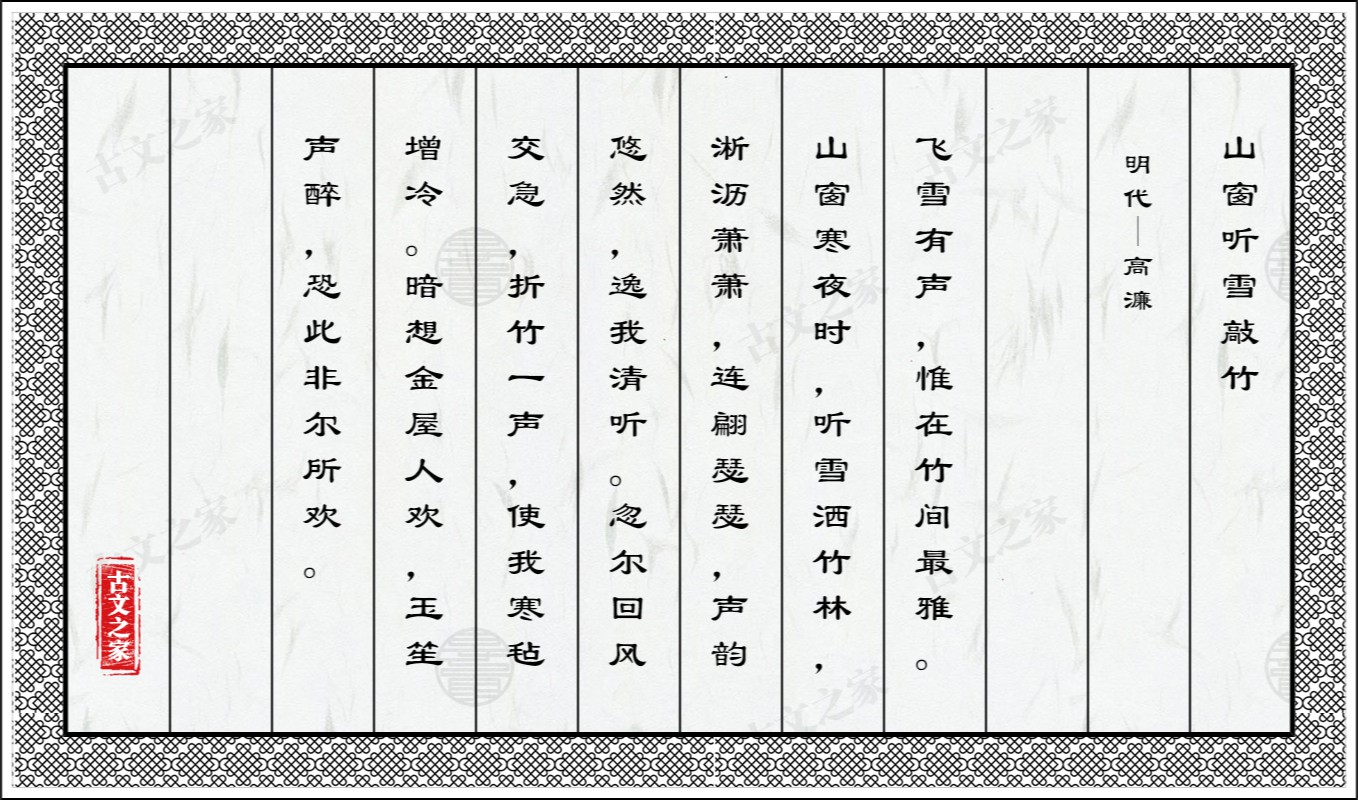 山窗听雪敲竹
明代—高濂
飞雪有声，惟在竹间最雅。
山窗寒夜时，听雪洒竹林，
淅沥萧萧，连翩瑟瑟，声韵
悠然，逸我清听。忽尔回风
交急，折竹一声，使我寒毡
增冷。暗想金屋人欢，玉笙
声醉，恐此非尔所欢。
古文之家